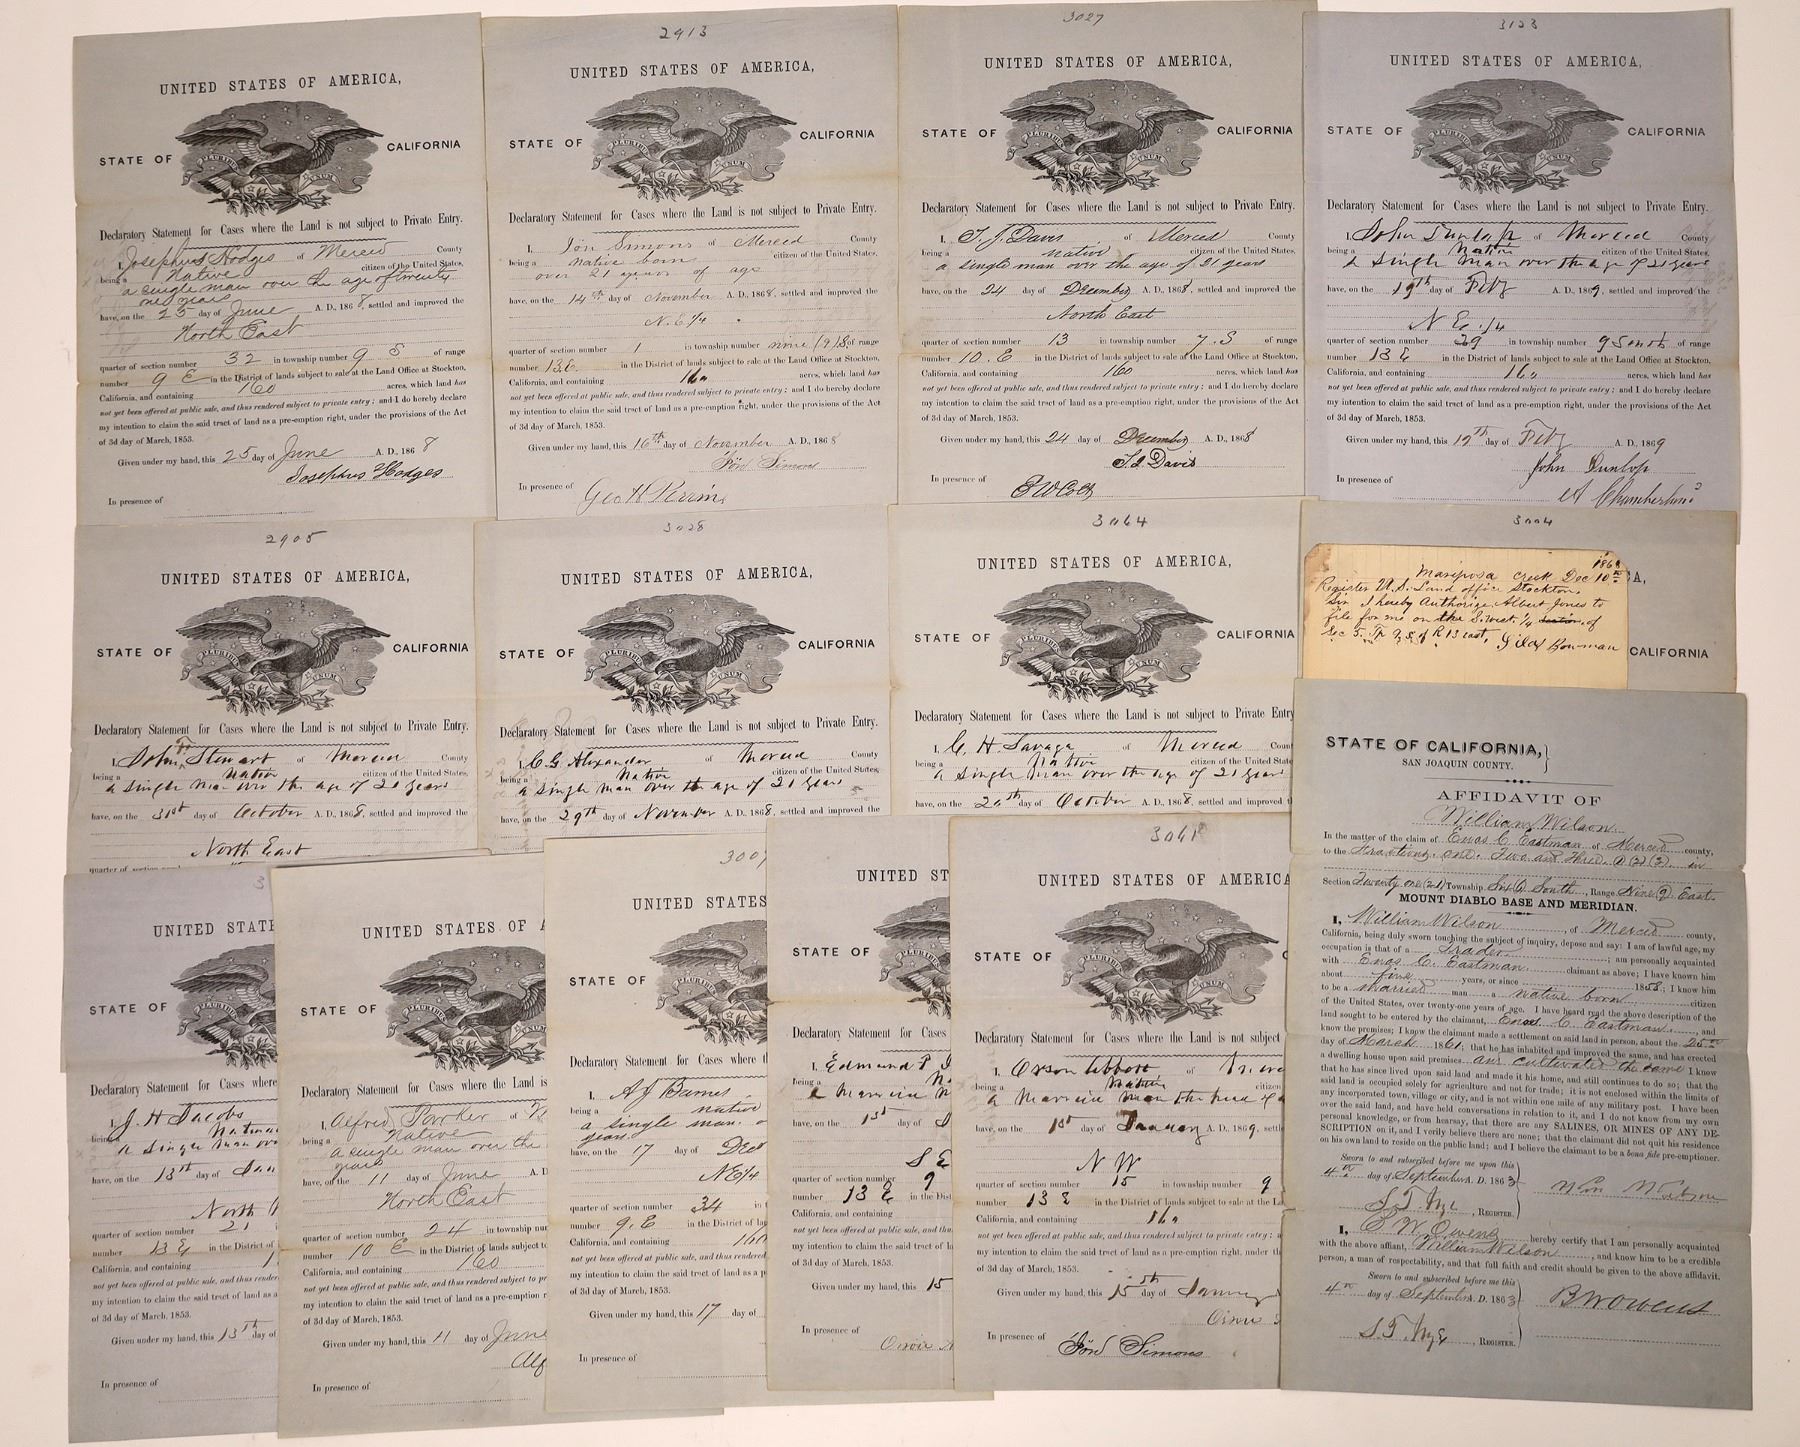 UNITED STATES OF AMERICA,
STATE OF CALIFORNIA
E PLURIBUS UNUM
Declaratory Statement for Cases where the Land is not subject to Private Entry.
I, Josephus Hodges of Merced County
being a Native citizen of the United States,
a single man over the age of twenty
one years
have, on the 25 day of June A. D., 1868, settled and improved the
North East
quarter of section number 32 in township number 9 S of range
number 9 E in the District of lands subject to sale at the Land Office at Stockton,
California, and containing 160 acres, which land has
not yet been offered at public sale, and thus rendered subject to private entry; and I do hereby declare
my intention to claim the said tract of land as a pre-emption right, under the provisions of the Act
of 3d day of March, 1853.
Given under my hand, this 25 day of June A. D. 1868
Josephus Hodges
In presence of
2913
UNITED STATES OF AMERICA,
STATE OF CALIFORNIA
PLURIBUS UNUM
Declaratory Statement for Cases where the Land is not subject to Private Entry.
I, Simons of Merced County
being a native born citizen of the United States,
over 21 years of age
have, on the 14th day of November A. D., 1868, settled and improved the
N. E. 1/4
quarter of section number 1 in township number nine (9) S of range
number in the District of lands subject to sale at the Land Office at Stockton,
California, and containing 160 acres, which land has
not yet been offered at public sale, and thus rendered subject to private entry; and I do hereby declare
my intention to claim the said tract of land as a pre-emption right, under the provisions of the Act
of 3d day of March, 1853.
Given under my hand, this 16th day of November A. D. 1868
Simons
In presence of Geo H
3027
UNITED STATES OF AMERICA,
STATE OF CALIFORNIA
PLURIBUS UNUM
Declaratory Statement for Cases where the Land is not subject to Private Entry.
I, T. J. Davis of Merced County
being a native citizen of the United States,
a single man over the age of 21 years
have, on the 24 day of December A. D., 1868, settled and improved the
North East
quarter of section number 13 in township number 7. S of range
number 10. E in the District of lands subject to sale at the Land Office at Stockton,
California, and containing 160 acres, which land has
not yet been offered at public sale, and thus rendered subject to private entry; and I do hereby declare
my intention to claim the said tract of land as a pre-emption right, under the provisions of the Act
of 3d day of March, 1853.
Given under my hand, this 24 day of December A. D., 1868
T. J. Davis
In presence of
3123
UNITED STATES OF AMERICA,
STATE OF CALIFORNIA
PLURIBUS UNUM
Declaratory Statement for Cases where the Land is not subject to Private Entry.
I, John Dunlap of Merced County
being a Native citizen of the United States,
a single man over the age of 21 years
have, on the 19th day of Feby A. D., 1869, settled and improved the
N E 1/4
quarter of section number 29 in township number 9 South of range
number 13 E in the District of lands subject to sale at the Land Office at Stockton,
California, and containing 160 acres, which land has
not yet been offered at public sale, and thus rendered subject to private entry; and I do hereby declare
my intention to claim the said tract of land as a pre-emption right, under the provisions of the Act
of 3d day of March, 1853.
Given under my hand, this 19th day of Feby A. D. 1869
John Dunlap
In presence of
2905
UNITED STATES OF AMERICA,
STATE OF CALIFORNIA
PLURIBUS UNUM
Declaratory Statement for Cases where the Land is not subject to Private Entry.
I, John Stewart of Merced County
being a Native citizen of the United States,
a single man over the age of 21 years
have, on the 31st day of October A. D., 1868, settled and improved the
North East
quarter of section number
3028
UNITED STATES OF AMERICA,
STATE OF CALIFORNIA
PLURIBUS UNUM
Declaratory Statement for Cases where the Land is not subject to Private Entry.
I, C. G. Alexander of Merced County
being a Native citizen of the United States,
a single man over the age of 21 years
have, on the 29th day of November A. D., 1868, settled and improved the
3064
UNITED STATES OF AMERICA,
STATE OF CALIFORNIA
PLURIBUS UNUM
Declaratory Statement for Cases where the Land is not subject to Private Entry.
I, C. H. Savage of Merced Coun
being a Native citizen of the United States
a single man over the age of 21 years
have, on the 20th day of October A. D., 1868, settled and improved t
3004
CALIFORNIA
Mariposa Creek Dec 10th 186
Register U. S. Land office Stockton
Sir I hereby Authorize Albert Jones to
file for me on the S. west 1/4 section of
Sec 5. Tp of R 13 east, Bowman
STATE OF CALIFORNIA,
SAN JOAQUIN COUNTY.
AFFIDAVIT OF
William Wilson
In the matter of the claim of Enos C. Eastman of Merced county,
to the fractions one. Two and Three. (1) (2) (3) in
Section Twenty one (21) Township Six (6) South, Range Nine (9) East
MOUNT DIABLO BASE AND MERIDIAN.
I, William Wilson, of Merced county,
California, being duly sworn touching the subject of inquiry, depose and say: I am of lawful age, my
occupation is that of a Trader; am personally acquainted
with Enos C. Eastman claimant as above; I have known him
about five years, or since 1858; I know him
to be a married man a native born citizen
of the United States, over twenty-one years of age. I have heard read the above description of the
land sought to be entered by the claimant, Enos C. Eastman, and
know the premises; I know the claimant made a settlement on said land in person, about the 25th
day of March 1861; that he has inhabited and improved the same, and has erected
a dwelling house upon said premises and cultivated the same I know
that he has since lived upon said land and made it his home, and still continues to do so; that the
said land is occupied solely for agriculture and not for trade; it is not enclosed within the limits of
any incorporated town, village or city, and is not within one mile of any military post. I have been
over the said land, and have held conversations in relation to it, and I do not know from my own
personal knowledge, or from hearsay, that there are any SALINES, OR MINES OF ANY DE-
SCRIPTION on it, and I verily believe there are none; that the claimant did not quit his residence
on his own land to reside on the public land; and I believe the claimant to be a bona fide pre-emptioner.
Sworn to and subscribed before me upon this
4th day of September A.D. 1863
Wm Wilson
REGISTER.
I, Owens hereby certify that I am personally acquainted
with the above affiant, William Wilson, and know him to be a credible
person, a man of respectability, and that full faith and credit should be given to the above affidavit.
Sworn to and subscribed before me this
4th day of September A. D. 1863
Owens
REGISTER.
3
UNITED STAT
STATE OF
PLURIBUS
Declaratory Statement for Cases where
I, J. H. Jacobs
being a Native
a single man over
have, on the 13th day of Jan
North
quarter of section number 21
number 13 E in the District of
California, and containing 1
not yet been offered at public sale, and thus render
my intention to claim the said tract of land as a
of 3d day of March, 1853.
Given under my hand, this 13th day of
In presence of
UNITED STATES OF A
STATE OF
PLURIBUS UNUM
Declaratory Statement for Cases where the Land is
I, Alfred Parker of
being a Native
a single man over the
years
have, on the 11 day of June A. D
North East
quarter of section number 24 in township num
number 10 E in the District of lands subject to
California, and containing 160
not yet been offered at public sale, and thus rendered subject to pr
my intention to claim the said tract of land as a pre-emption r
of 3d day of March, 1853.
Given under my hand, this 11 day of June
Alf
In presence of
300
UNITED STATES
STATE OF
PLURIBUS
Declaratory Statement for Cases where t
I, A J Barnes
being a native
a single man. o
years.
have, on the 17 day of Dec
N E 1/4
quarter of section number 34 in t
number 9. E in the District of la
California, and containing 160
not yet been offered at public sale, and thus rendered
my intention to claim the said tract of land as a p
of 3d day of March, 1853.
Given under my hand, this 17 day of
In presence of
UNITED ST
STATE OF
PLURIBUS
Declaratory Statement for Cases
I, Edmund
being a
a Married
have, on the 1st day of
S E
quarter of section number 9
number 13 E in the Dist
California, and containing
not yet been offered at public sale, and thu
my intention to claim the said tract of l
of 3d day of March, 1853.
Given under my hand, this 15
In presence of
3061
UNITED STATES OF AMERICA
STATE OF
PLURIBUS UNUM
Declaratory Statement for Cases where the Land is not subject
I, Orson Abbott of
being a Native citizen
a Married man the head of a
have, on the 1st day of January A. D., 1869, settl
N W
quarter of section number 15 in township number 9
number 13 E in the District of lands subject to sale at the La
California, and containing 160
not yet been offered at public sale, and thus rendered subject to private entry; a
my intention to claim the said tract of land as a pre-emption right, under th
of 3d day of March, 1853.
Given under my hand, this 15th day of January
In presence of
Simons